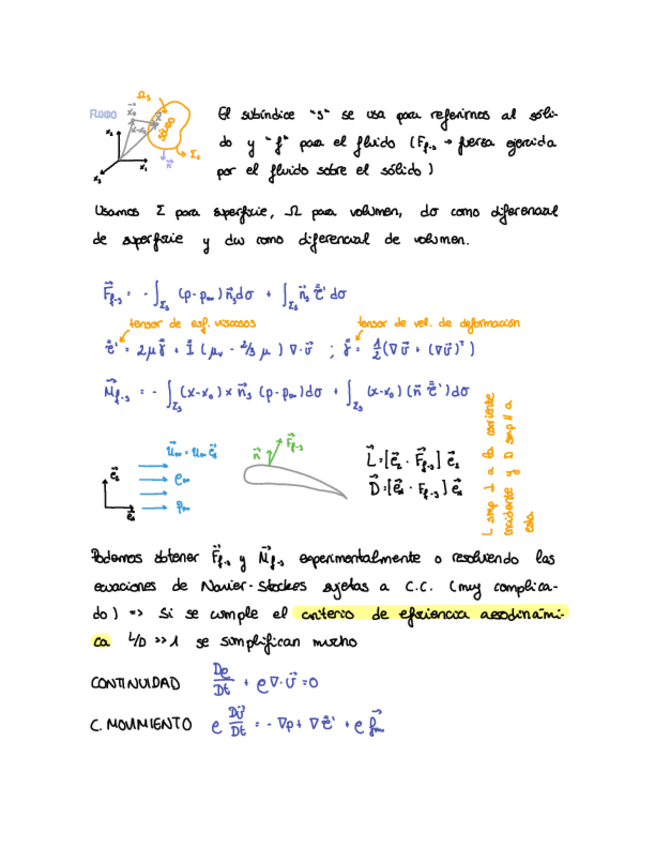 Ωs
FLUIDO
SÓLIDO
Σs
n
x₂
x₁
x₃
El subíndice "s" se usa para referirnos al sóli-
do y "f" para el fluido (F_f-s → fuerza ejercida
por el fluido sobre el sólido)
Usamos Σ para superficie, Ω para volumen, dσ como diferencial
de superficie y dω como diferencial de volumen.
F⃗_f-s = - ∫_Σs (p-p∞) n⃗s dσ + ∫_Σs n⃗s τ̿' dσ
tensor de esf. viscosos
tensor de vel. de deformación
τ̿' = 2μ γ̿ + I̿ (μv - 2/3 μ) ∇·v⃗ ; γ̿ = 1/2 (∇v⃗ + (∇v⃗)ᵀ)
M⃗_f-s = - ∫_Σs (x-x₀) × n⃗s (p-p∞) dσ + ∫_Σs (x-x₀) (n⃗ τ̿') dσ
u⃗∞ = u∞ e⃗₁
e⃗₂
ρ∞
p∞
e⃗₁
n⃗
F⃗_f-s
L⃗ = [e⃗₂ · F⃗_f-s] e⃗₂
D⃗ = [e⃗₁ · F_f-s] e⃗₁
L smp ⊥ a la corriente
incidente y D smp // a
esta
Podemos obtener F⃗_f-s y M⃗_f-s experimentalmente o resolviendo las
ecuaciones de Navier-Stockes sujetas a C.C. (muy complica-
do) => Si se cumple el criterio de eficiencia aerodinámi-
ca L/D >> 1 se simplifican mucho
CONTINUIDAD Dρ/Dt + ρ∇·v⃗ = 0
C. MOVIMIENTO ρ Dv⃗/Dt = - ∇p + ∇τ̿' + ρ f⃗m